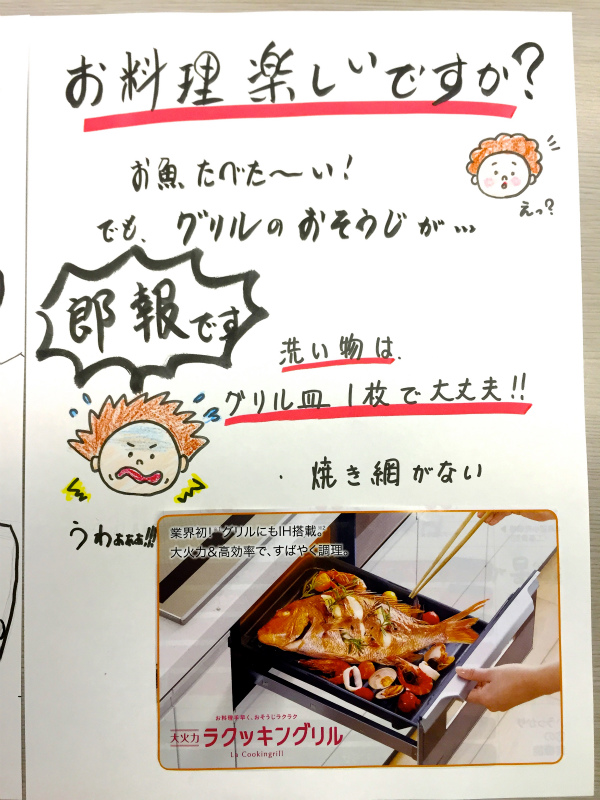 お料理楽しいですか?
お魚たべた〜い!
えっ?
でも、グリルのおそうじが…
郎報です
洗い物は、
グリル皿1枚で大丈夫!!
・焼き網がない
うわぁぁぁ!!!
業界初!※1グリルにもIH搭載。※2
大火力&高効率で、すばやく調理。
お料理手早く、おそうじラクラク
大火力 ラクッキングリル
La Cookingrill